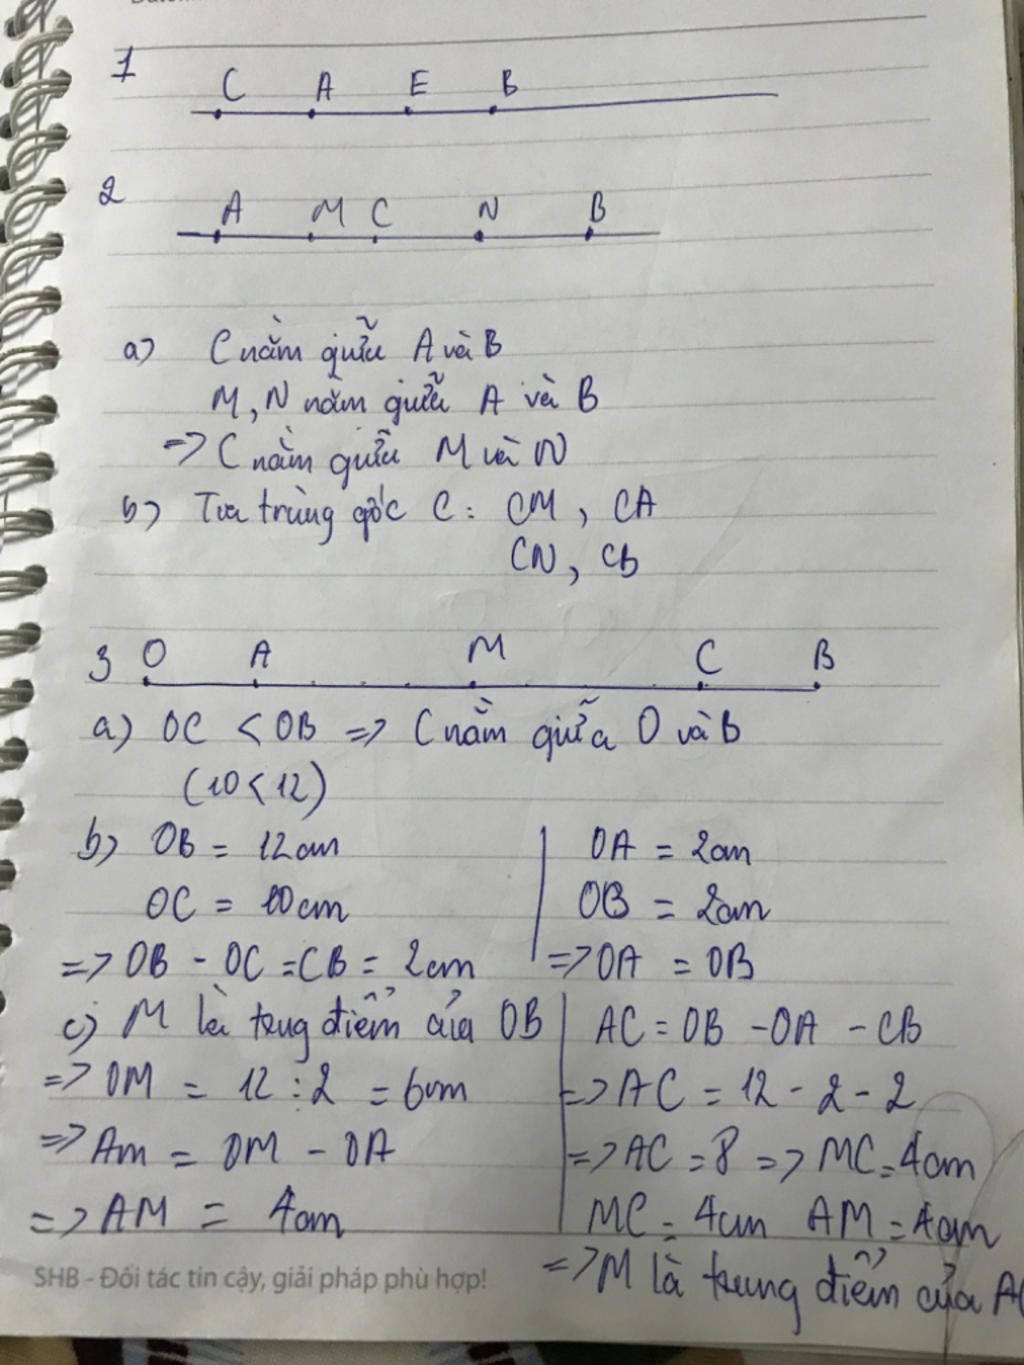 1
C A E B
2
A M C N B
a) C nằm giữa A và B
M, N nằm giữa A và B
=> C nằm giữa M và N
b) Tia trùng gốc C: CM, CA
CN, CB
3 O A M C B
a) OC < OB => C nằm giữa O và B
(10 < 12)
b) OB = 12cm
OC = 10cm
=> OB - OC = CB = 2cm
OA = 2cm
OB = 2cm
=> OA = OB
c) M là trung điểm của OB
=> OM = 12 : 2 = 6cm
=> Am = OM - OA
=> AM = 4cm
AC = OB - OA - CB
=> AC = 12 - 2 - 2
=> AC = 8 => MC = 4cm
MC = 4cm AM = 4cm
=> M là trung điểm của AC
SHB - Đối tác tin cậy, giải pháp phù hợp!